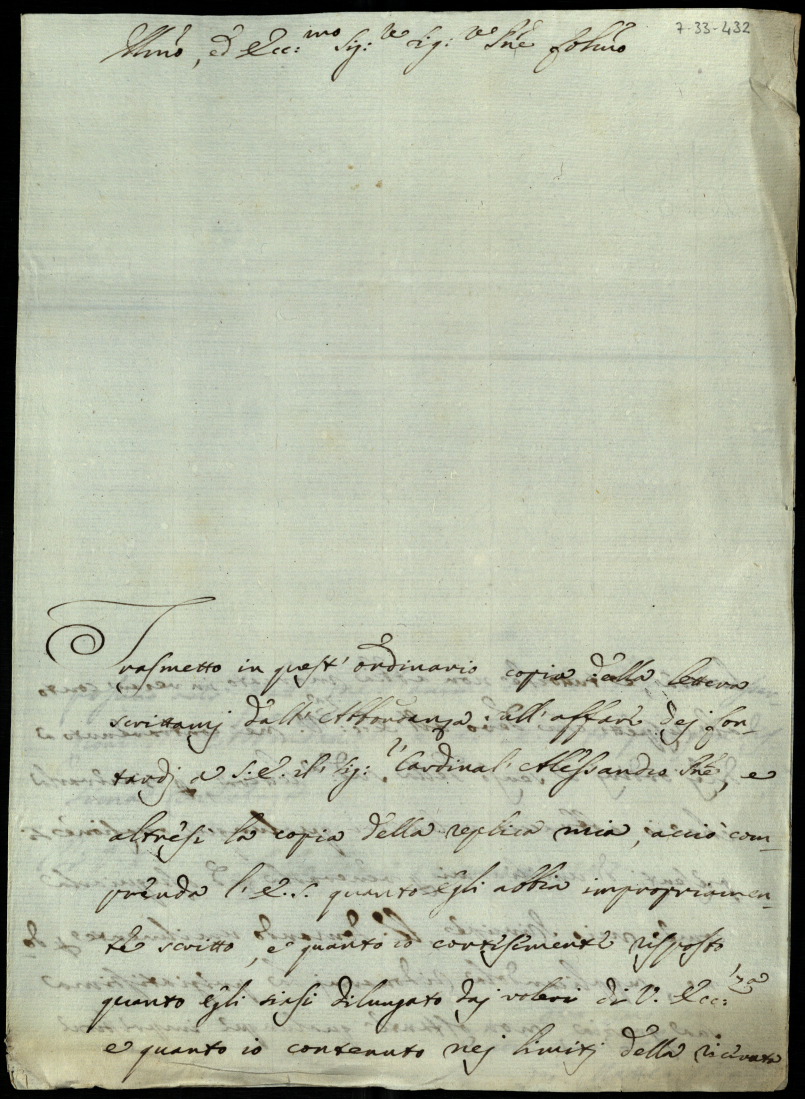 7-33-432
Illmo, ed Ecc:mo Sig:re Sig:re Pne Colmo
Trasmetto in quest' ordinario copia della lettera
scrittami dall' Abbondanza: all' affare dej Con-
tardj a S: E. il Sig:r Cardinal' Alessandro Pne, e
altresi la copia della replica mia, acciò com-
prenda l' E. S. quanto egli abbia impropriamen-
te scritto, e quanto io cortesemente risposto
quanto egli siasi dilungato daj voleri di V. Ecc:za
e quanto io contenuto nej limitj della ricevuta